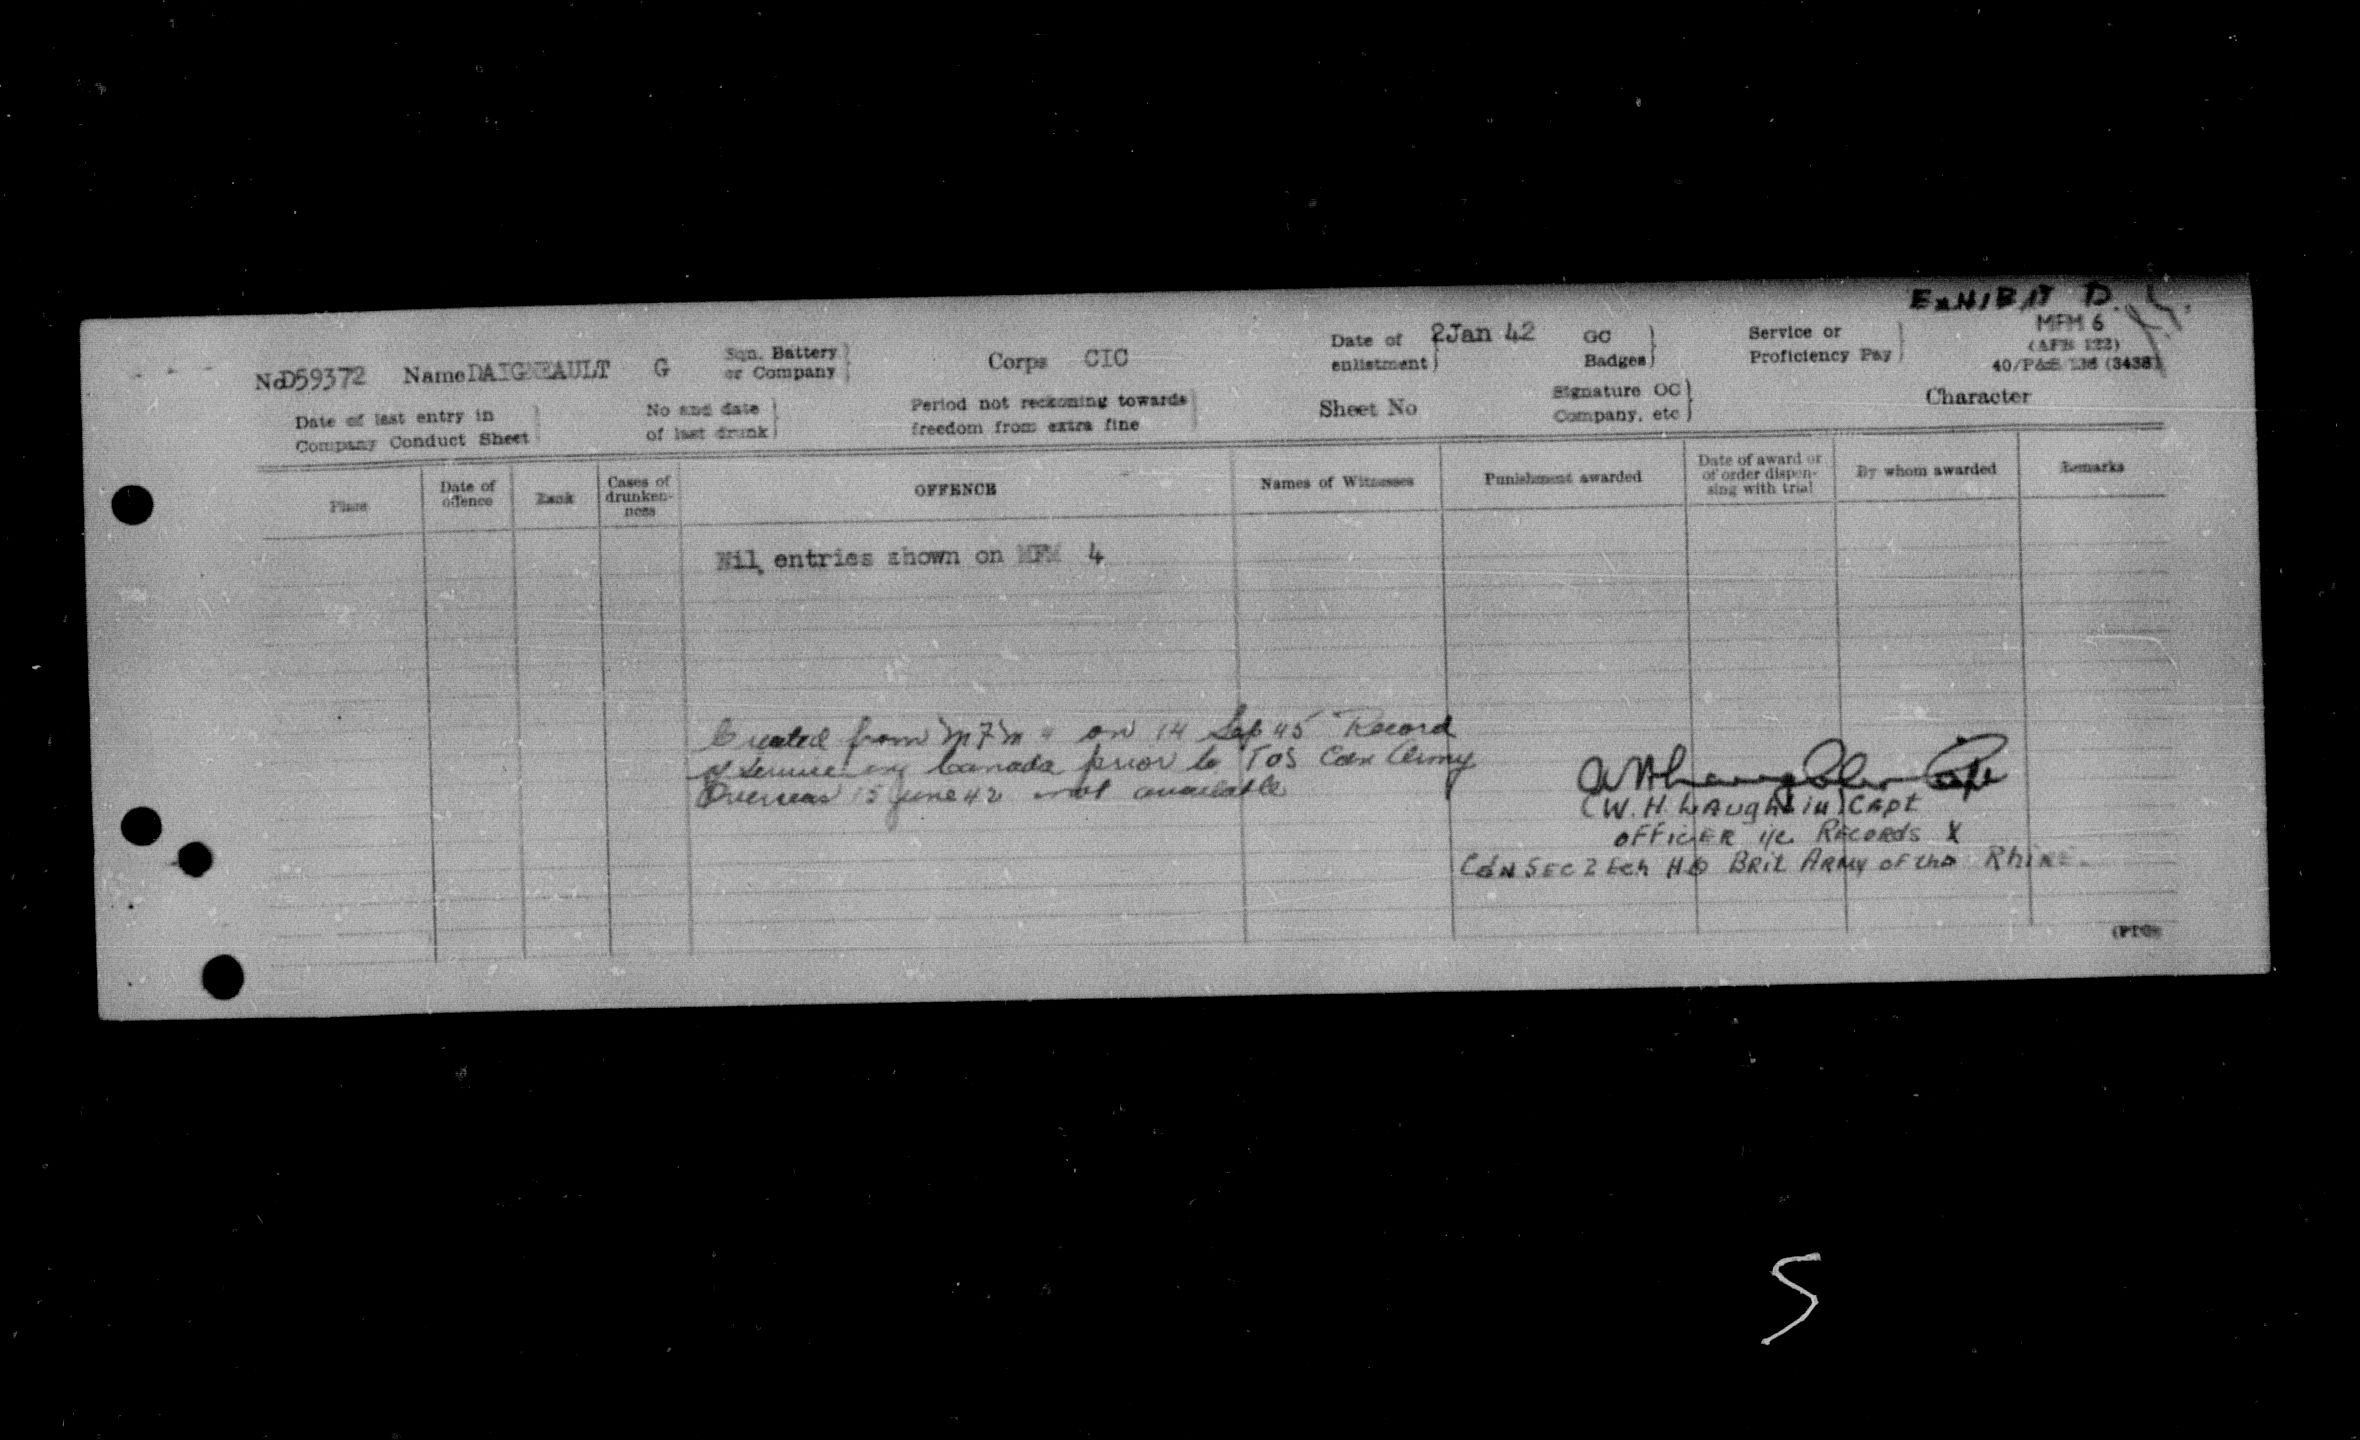 EXHIBIT D.
MFM 6
(AFB 122)
40/P&S/136 (3438)
No D59372 Name DAIGNEAULT G Sqn. Battery or Company Corps CIC Date of enlistment 2Jan 42 GC Badges Service or Proficiency Pay
Date of last entry in Company Conduct Sheet No and date of last drunk Period not reckoning towards freedom from extra fine Sheet No Signature OC Company, etc Character
Place Date of offence Rank Cases of drunken-ness OFFENCE Names of Witnesses Punishment awarded Date of award or of order dispen-sing with trial By whom awarded Remarks
Nil entries shown on MFM 4
Created from MFM 4 on 14 Sep 45 Record
of service in Canada prior to TOS Cdn Army
Overseas 15 June 42 not available
W H Laughlin Capt
(W. H. LAughlin) CApt
OFFICER i/c RECORDS
Cdn SEC 2 Ech HQ BRit ARMy of the RhiNE.
(PTO)
5